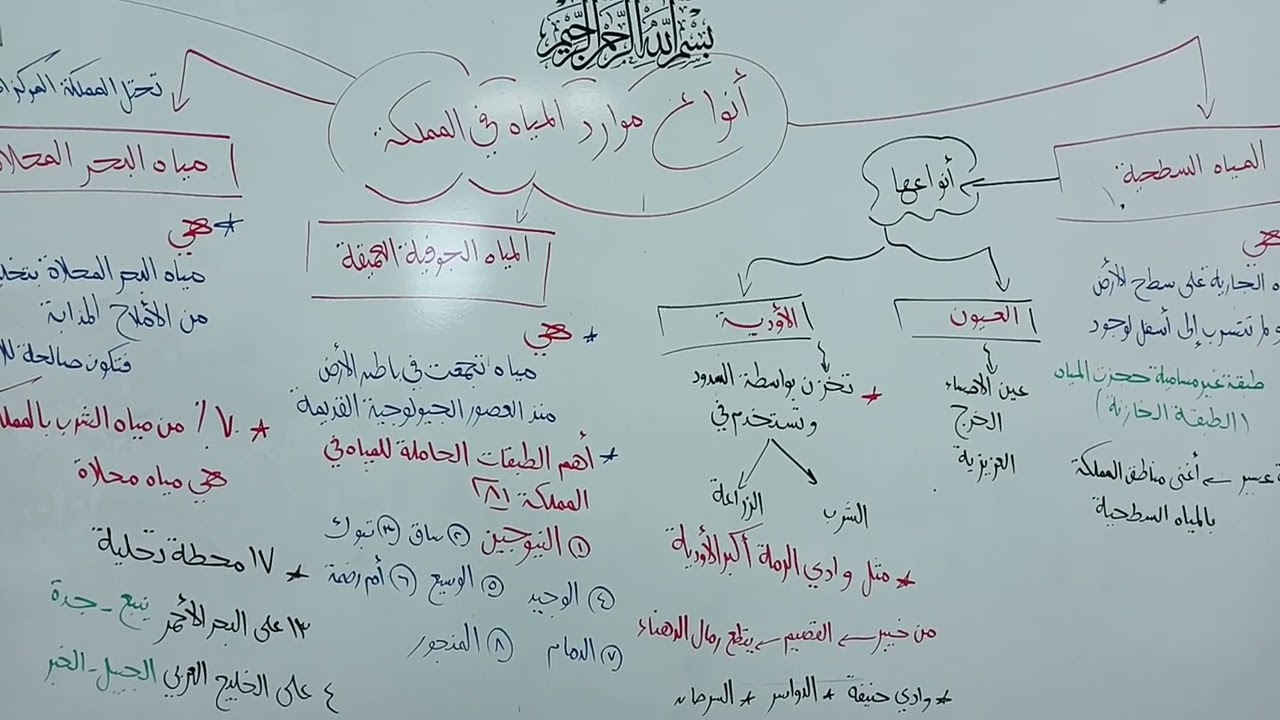 بسم الله الرحمن الرحيم
أنواع موارد المياه في المملكة
المياه السطحية
هي
الجارية على سطح الأرض
ولم تتسرب إلى أسفل لوجود
طبقة غير مسامية تحجز المياه
(الطبقة الخازنة)
عسير من أغنى مناطق المملكة
بالمياه السطحية
أنواعها
العيون
عين الأحساء
الخرج
العزيزية
الأودية
* تخزن بواسطة السدود
وتستخدم في
الشرب
الزراعة
* مثل وادي الرمة أكبر الأودية
من خيبر القصيم يقطع رمال الدهناء
* وادي حنيفة * الدواسر * السرحان
المياه الجوفية العميقة
* هي
مياه تجمعت في باطن الأرض
منذ العصور الجيولوجية القديمة
* أهم الطبقات الحاملة للمياه في
المملكة (٨)
١ النيوجين ٢ ساق ٣ تبوك
٤ الوجيد ٥ الوسيع ٦ أم رضمة
٧ الدمام ٨ المنجور
تحتل المملكة المركز
مياه البحر المحلاة
* هي
مياه البحر المحلاة
من الأملاح المذابة
فتكون صالحة
* ٧٠٪ من مياه الشرب
هي مياه محلاة
* ١٧ محطة تحلية
١٣ على البحر الأحمر ينبع - جدة
٤ على الخليج العربي الجبيل - الخبر